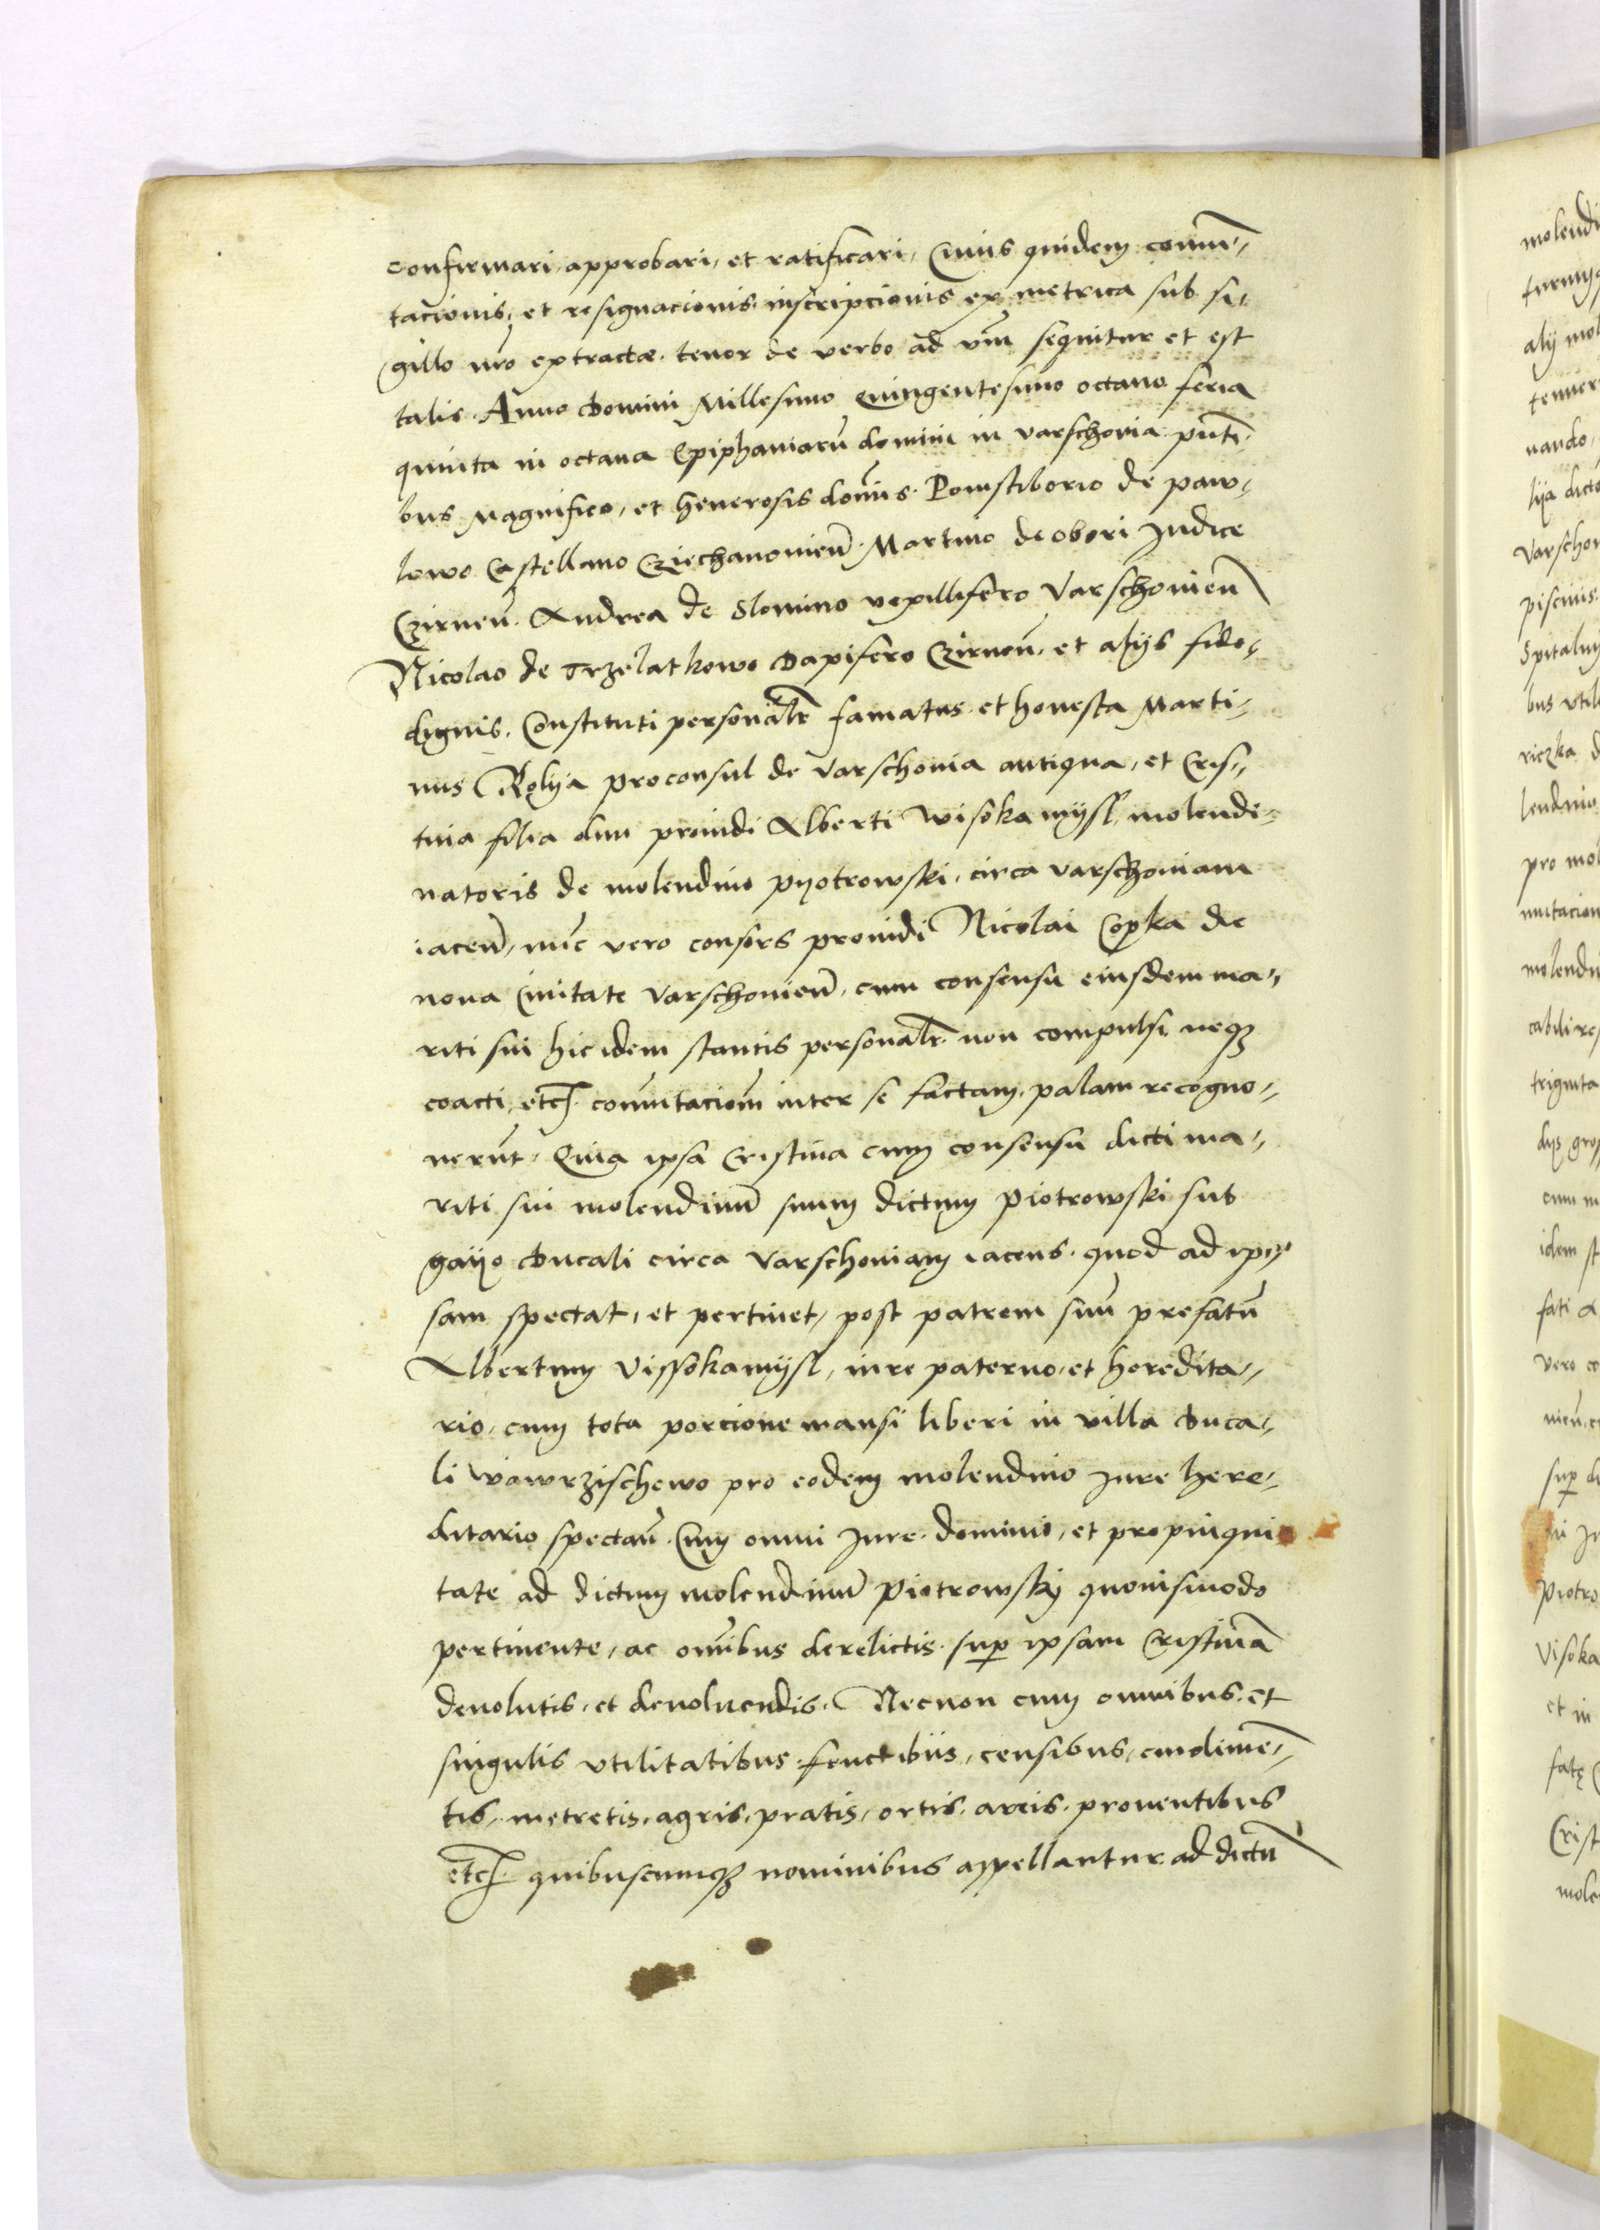 confirmari, approbari, et ratificari, Cuius quidem comu-
tacionis, et resignacionis inscripcionis ex metrica sub si-
gillo nr̃o extractae tenor de verbo ad vm̃ sequitur et est
talis. Anno Domini Millesimo Quingentesimo octauo feria
quinta in octaua Epiphaniarũ domini in varschouia pñti-
bus Magnifico, et generosis dom̃is. Pomstiborio de paw-
lowo Castellano Cziechanouieñ. Martino de obori Judice
Czirneñ. Andrea de Slomino vexillifero Varschouieñ
Nicolao de Trzelatkowo Dapifero Czirneñ. et alijs fide-
dignis. Constituti personalr̃ famatus et honesta Marti-
nus Rolya proconsul de varschouia antiqua, et Cris-
tina filia olim prouidi Alberti Wisokamysl, molendi-
natoris de molendino pyotrowski, circa varschouiam
iaceñ, nũc vero consors prouidi Nicolai Copka de
noua Ciuitate Varschouieñ, cum consensu eiusdem ma-
riti sui hic idem stantis personalr̃ non compulsi neq3
coacti, etc̃. comutacionem̃ inter se factam, palam recogno-
uerũt, Quia ipsa Cristina cum consensu dicti ma-
riti sui molendinũ suum dictum piotrowski sub
gayo Ducali circa varschouiam iacens. quod ad ip-
sam spectat, et pertinet, post patrem suũ prefatũ
Albertum Vissokamysl, iure paterno, et heredita-
rio, cum tota porcione mansi liberi in villa Duca-
li wawrzischewo pro eodem molendino Jure here-
ditario spectañ. Cum omni Jure. dominio, et propinqui
tate ad dictum molendinũ piotrowskij quouismodo
pertinente, ac om̃ibus derelictis. sup̃ ipsam Cristinã
deuolutis, et deuoluendis. Necnon cum omnibus et
singulis vtilitatibus fructibus, censibus, emolimẽ-
tis, metretis, agris, pratis, ortis. areis. prouentibus
etc̃. quibuscumq3 nominibus appellantur ad dictũ